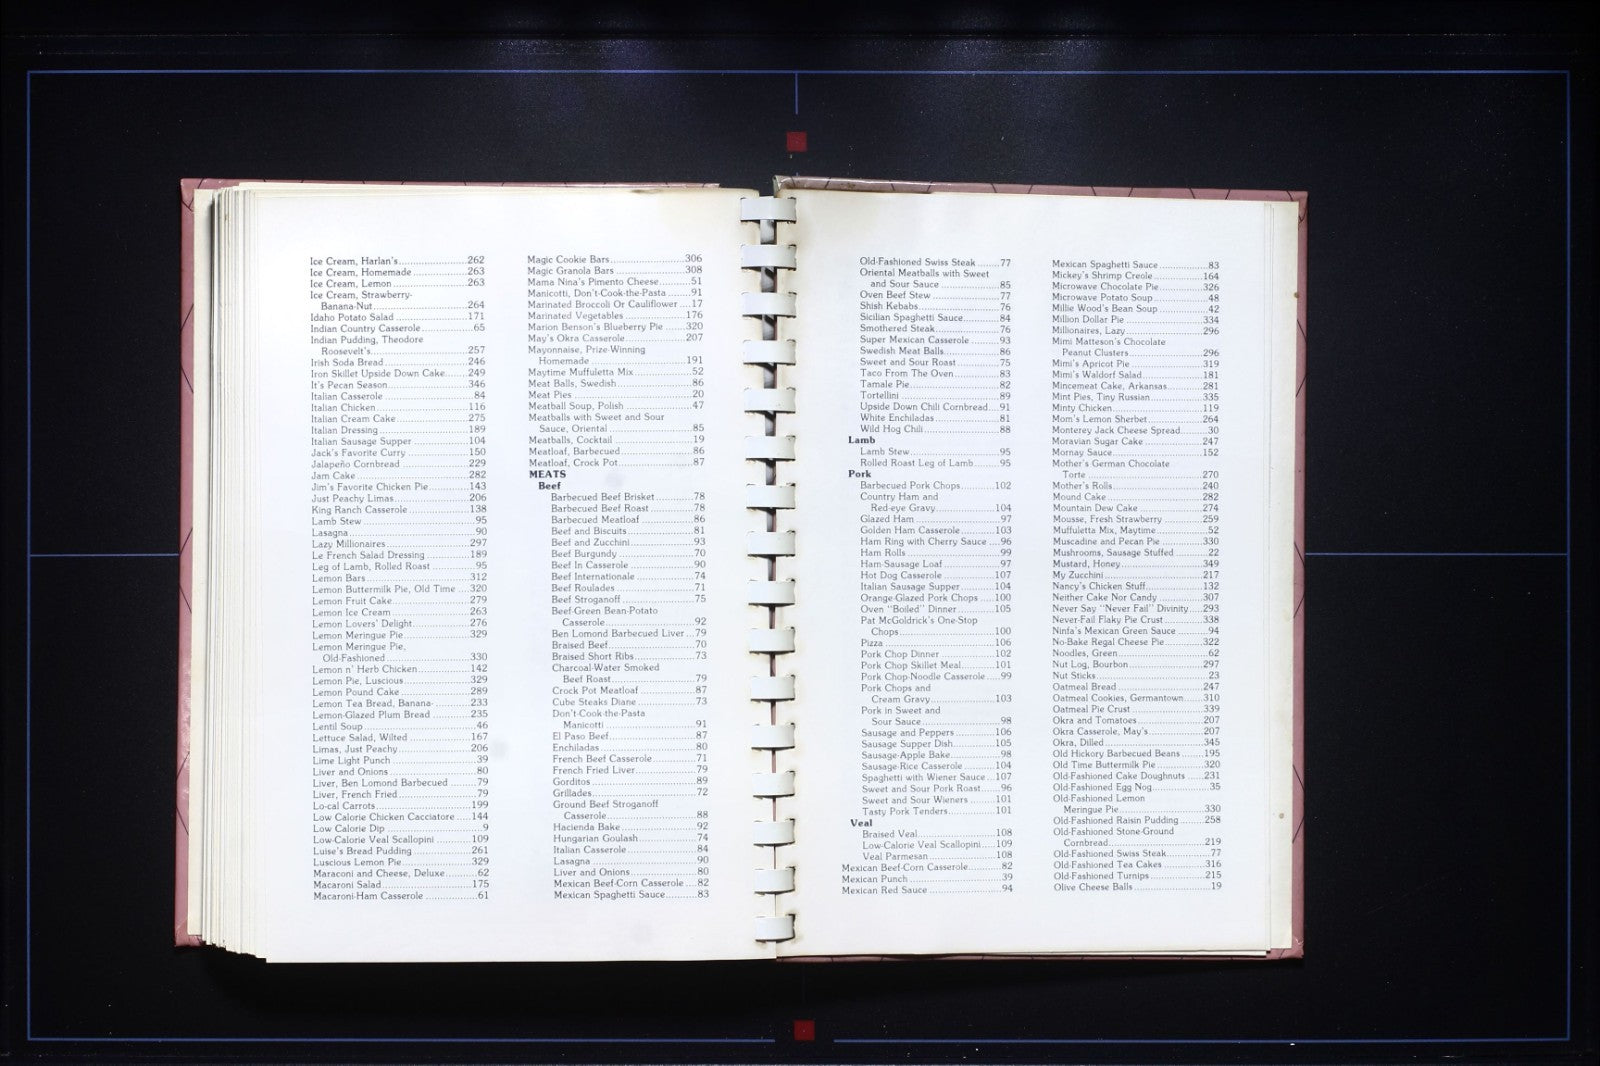 Ice Cream, Harlan's....................262
Ice Cream, Homemade................263
Ice Cream, Lemon......................263
Ice Cream, Strawberry-
Banana-Nut.............................264
Idaho Potato Salad......................171
Indian Country Casserole...............65
Indian Pudding, Theodore
Roosevelt's..............................257
Irish Soda Bread.........................246
Iron Skillet Upside Down Cake.......249
It's Pecan Season.......................346
Italian Casserole..........................84
Italian Chicken...........................116
Italian Cream Cake.....................275
Italian Dressing..........................189
Italian Sausage Supper................104
Jack's Favorite Curry...................150
Jalapeño Cornbread....................229
Jam Cake.................................282
Jim's Favorite Chicken Pie............143
Just Peachy Limas......................206
King Ranch Casserole..................138
Lamb Stew.................................95
Lasagna.....................................90
Lazy Millionaires.........................297
Le French Salad Dressing.............189
Leg of Lamb, Rolled Roast.............95
Lemon Bars..............................312
Lemon Buttermilk Pie, Old Time....320
Lemon Fruit Cake.......................279
Lemon Ice Cream.......................263
Lemon Lovers' Delight.................276
Lemon Meringue Pie...................329
Lemon Meringue Pie,
Old-Fashioned.........................330
Lemon n' Herb Chicken...............142
Lemon Pie, Luscious...................329
Lemon Pound Cake....................289
Lemon Tea Bread, Banana-..........233
Lemon-Glazed Plum Bread..........235
Lentil Soup................................46
Lettuce Salad, Wilted..................167
Limas, Just Peachy.....................206
Lime Light Punch........................39
Liver and Onions.........................80
Liver, Ben Lomond Barbecued.......79
Liver, French Fried.......................79
Lo-cal Carrots............................199
Low Calorie Chicken Cacciatore....144
Low Calorie Dip............................9
Low-Calorie Veal Scallopini..........109
Luise's Bread Pudding.................261
Luscious Lemon Pie....................329
Maraconi and Cheese, Deluxe........62
Macaroni Salad..........................175
Macaroni-Ham Casserole..............61
Magic Cookie Bars......................306
Magic Granola Bars....................308
Mama Nina's Pimento Cheese........51
Manicotti, Don't-Cook-the-Pasta......91
Marinated Broccoli Or Cauliflower....17
Marinated Vegetables..................176
Marion Benson's Blueberry Pie......320
May's Okra Casserole..................207
Mayonnaise, Prize-Winning
Homemade.............................191
Maytime Muffuletta Mix................52
Meat Balls, Swedish.....................86
Meat Pies..................................20
Meatball Soup, Polish...................47
Meatballs with Sweet and Sour
Sauce, Oriental.........................85
Meatballs, Cocktail......................19
Meatloaf, Barbecued....................86
Meatloaf, Crock Pot.....................87
MEATS
Beef
Barbecued Beef Brisket...............78
Barbecued Beef Roast................78
Barbecued Meatloaf...................86
Beef and Biscuits......................81
Beef and Zucchini.....................93
Beef Burgundy.........................70
Beef In Casserole......................90
Beef Internationale....................74
Beef Roulades..........................71
Beef Stroganoff........................75
Beef-Green Bean-Potato
Casserole..............................92
Ben Lomond Barbecued Liver.....79
Braised Beef............................70
Braised Short Ribs....................73
Charcoal-Water Smoked
Beef Roast............................79
Crock Pot Meatloaf...................87
Cube Steaks Diane...................73
Don't-Cook-the-Pasta
Manicotti..............................91
El Paso Beef............................87
Enchiladas..............................80
French Beef Casserole...............71
French Fried Liver.....................79
Gorditos.................................89
Grillades.................................72
Ground Beef Stroganoff
Casserole..............................88
Hacienda Bake........................92
Hungarian Goulash...................74
Italian Casserole.......................84
Lasagna.................................90
Liver and Onions......................80
Mexican Beef-Corn Casserole.....82
Mexican Spaghetti Sauce...........83
Old-Fashioned Swiss Steak........77
Oriental Meatballs with Sweet
and Sour Sauce.....................85
Oven Beef Stew......................77
Shish Kebabs..........................76
Sicilian Spaghetti Sauce............84
Smothered Steak.....................76
Super Mexican Casserole..........93
Swedish Meat Balls..................86
Sweet and Sour Roast..............75
Taco From The Oven...............83
Tamale Pie.............................82
Tortellini................................89
Upside Down Chili Cornbread....91
White Enchiladas.....................81
Wild Hog Chili........................88
Lamb
Lamb Stew............................95
Rolled Roast Leg of Lamb.........95
Pork
Barbecued Pork Chops...........102
Country Ham and
Red-eye Gravy.....................104
Glazed Ham..........................97
Golden Ham Casserole...........103
Ham Ring with Cherry Sauce....96
Ham Rolls.............................99
Ham Sausage Loaf..................97
Hot Dog Casserole.................107
Italian Sausage Supper............104
Orange-Glazed Pork Chops.....100
Oven "Boiled" Dinner.............105
Pat McGoldrick's One-Stop
Chops................................100
Pizza...................................106
Pork Chop Dinner..................102
Pork Chop Skillet Meal............101
Pork Chop-Noodle Casserole.....99
Pork Chops and
Cream Gravy.......................103
Pork in Sweet and
Sour Sauce..........................98
Sausage and Peppers.............106
Sausage Supper Dish..............105
Sausage-Apple Bake................98
Sausage-Rice Casserole..........104
Spaghetti with Wiener Sauce...107
Sweet and Sour Pork Roast......96
Sweet and Sour Wieners........101
Tasty Pork Tenders................101
Veal
Braised Veal.........................108
Low-Calorie Veal Scallopini.....109
Veal Parmesan.....................108
Mexican Beef-Corn Casserole.......82
Mexican Punch.........................39
Mexican Red Sauce...................94
Mexican Spaghetti Sauce............83
Mickey's Shrimp Creole.............164
Microwave Chocolate Pie...........326
Microwave Potato Soup..............48
Millie Wood's Bean Soup............42
Million Dollar Pie......................334
Millionaires, Lazy.....................296
Mimi Matteson's Chocolate
Peanut Clusters.....................296
Mimi's Apricot Pie....................319
Mimi's Waldorf Salad................181
Mincemeat Cake, Arkansas........281
Mint Pies, Tiny Russian.............335
Minty Chicken.........................119
Mom's Lemon Sherbet.............264
Monterey Jack Cheese Spread.....30
Moravian Sugar Cake..............247
Mornay Sauce.........................152
Mother's German Chocolate
Torte..................................270
Mother's Rolls.........................240
Mound Cake..........................282
Mountain Dew Cake................274
Mousse, Fresh Strawberry.........259
Muffuletta Mix, Maytime.............52
Muscadine and Pecan Pie.........330
Mushrooms, Sausage Stuffed......22
Mustard, Honey......................349
My Zucchini...........................217
Nancy's Chicken Stuff..............132
Neither Cake Nor Candy..........307
Never Say "Never Fail" Divinity....293
Never-Fail Flaky Pie Crust.........338
Ninfa's Mexican Green Sauce......94
No-Bake Regal Cheese Pie........322
Noodles, Green........................62
Nut Log, Bourbon...................297
Nut Sticks...............................23
Oatmeal Bread.......................247
Oatmeal Cookies, Germantown....310
Oatmeal Pie Crust...................339
Okra and Tomatoes.................207
Okra Casserole, May's.............207
Okra, Dilled...........................345
Old Hickory Barbecued Beans.....195
Old Time Buttermilk Pie............320
Old-Fashioned Cake Doughnuts....231
Old-Fashioned Egg Nog.............35
Old-Fashioned Lemon
Meringue Pie........................330
Old-Fashioned Raisin Pudding....258
Old-Fashioned Stone-Ground
Cornbread...........................219
Old-Fashioned Swiss Steak.........77
Old-Fashioned Tea Cakes.........316
Old-Fashioned Turnips.............215
Olive Cheese Balls....................19